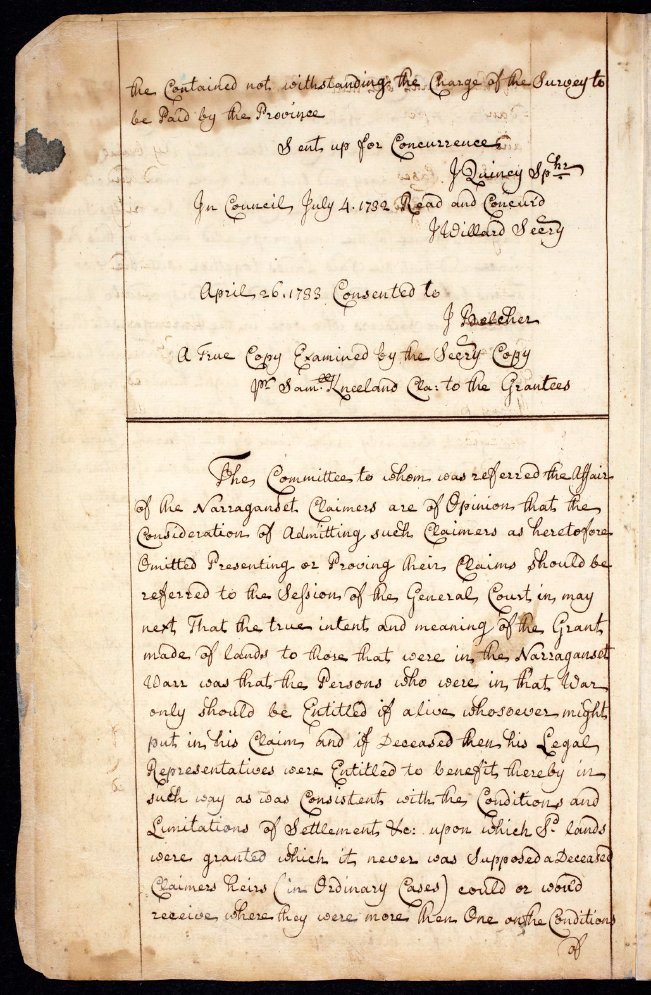 the Contained not withstanding the Charge of the Survey to
be Paid by the Province
Sent up for Concurrence
J Quincy Spkr
In Council July 4. 1732 Read and Concurd
J Willard Secry
April 26. 1733 Consented to
J Belcher
A True Copy Examined by the Secry Copy
pr Samll Kneeland Clar to the Grantees
The Committee to whom was referred the Affair
of the Narraganset Claimers are of Opinion that the
Consideration of Admitting such Claimers as heretofore
Omitted Presenting or Proving their Claims should be
referred to the Session of the General Court in may
next That the true intent and meaning of the Grant
made of lands to those that were in the Narraganset
Warr was that the Persons who were in that War
only should be Entitled if alive whosoever might
put in his Claim and if Deceased then his Legal
Representatives were Entitled to benefit thereby in
such way as was Consistent with the Conditions and
Limitations of Settlement &c: upon which Sd lands
were granted which it never was Supposed a Deceased
Claimers heirs (in Ordinary Cases) could or would
receive where they were more then One on the Conditions
of